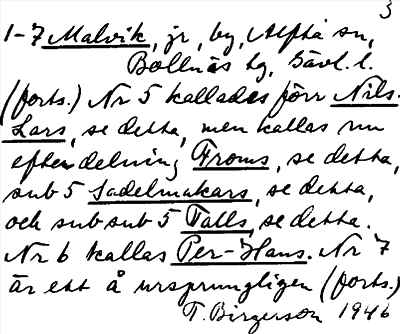 3
1-7 Malvik, jr, by, Alfta sn,
Bollnäs tg, Gävl. l.
(forts.) Nr 5 kallades förr Nils-
Lars, se detta, men kallas nu
efter delning Froms, se detta,
sub 5 Sadelmakars, se detta,
och sub sub 5 Talls, se detta.
Nr 6 kallas Per-Hans. Nr 7
är ett å ursprungligen (forts.)
T. Birgerson 1946